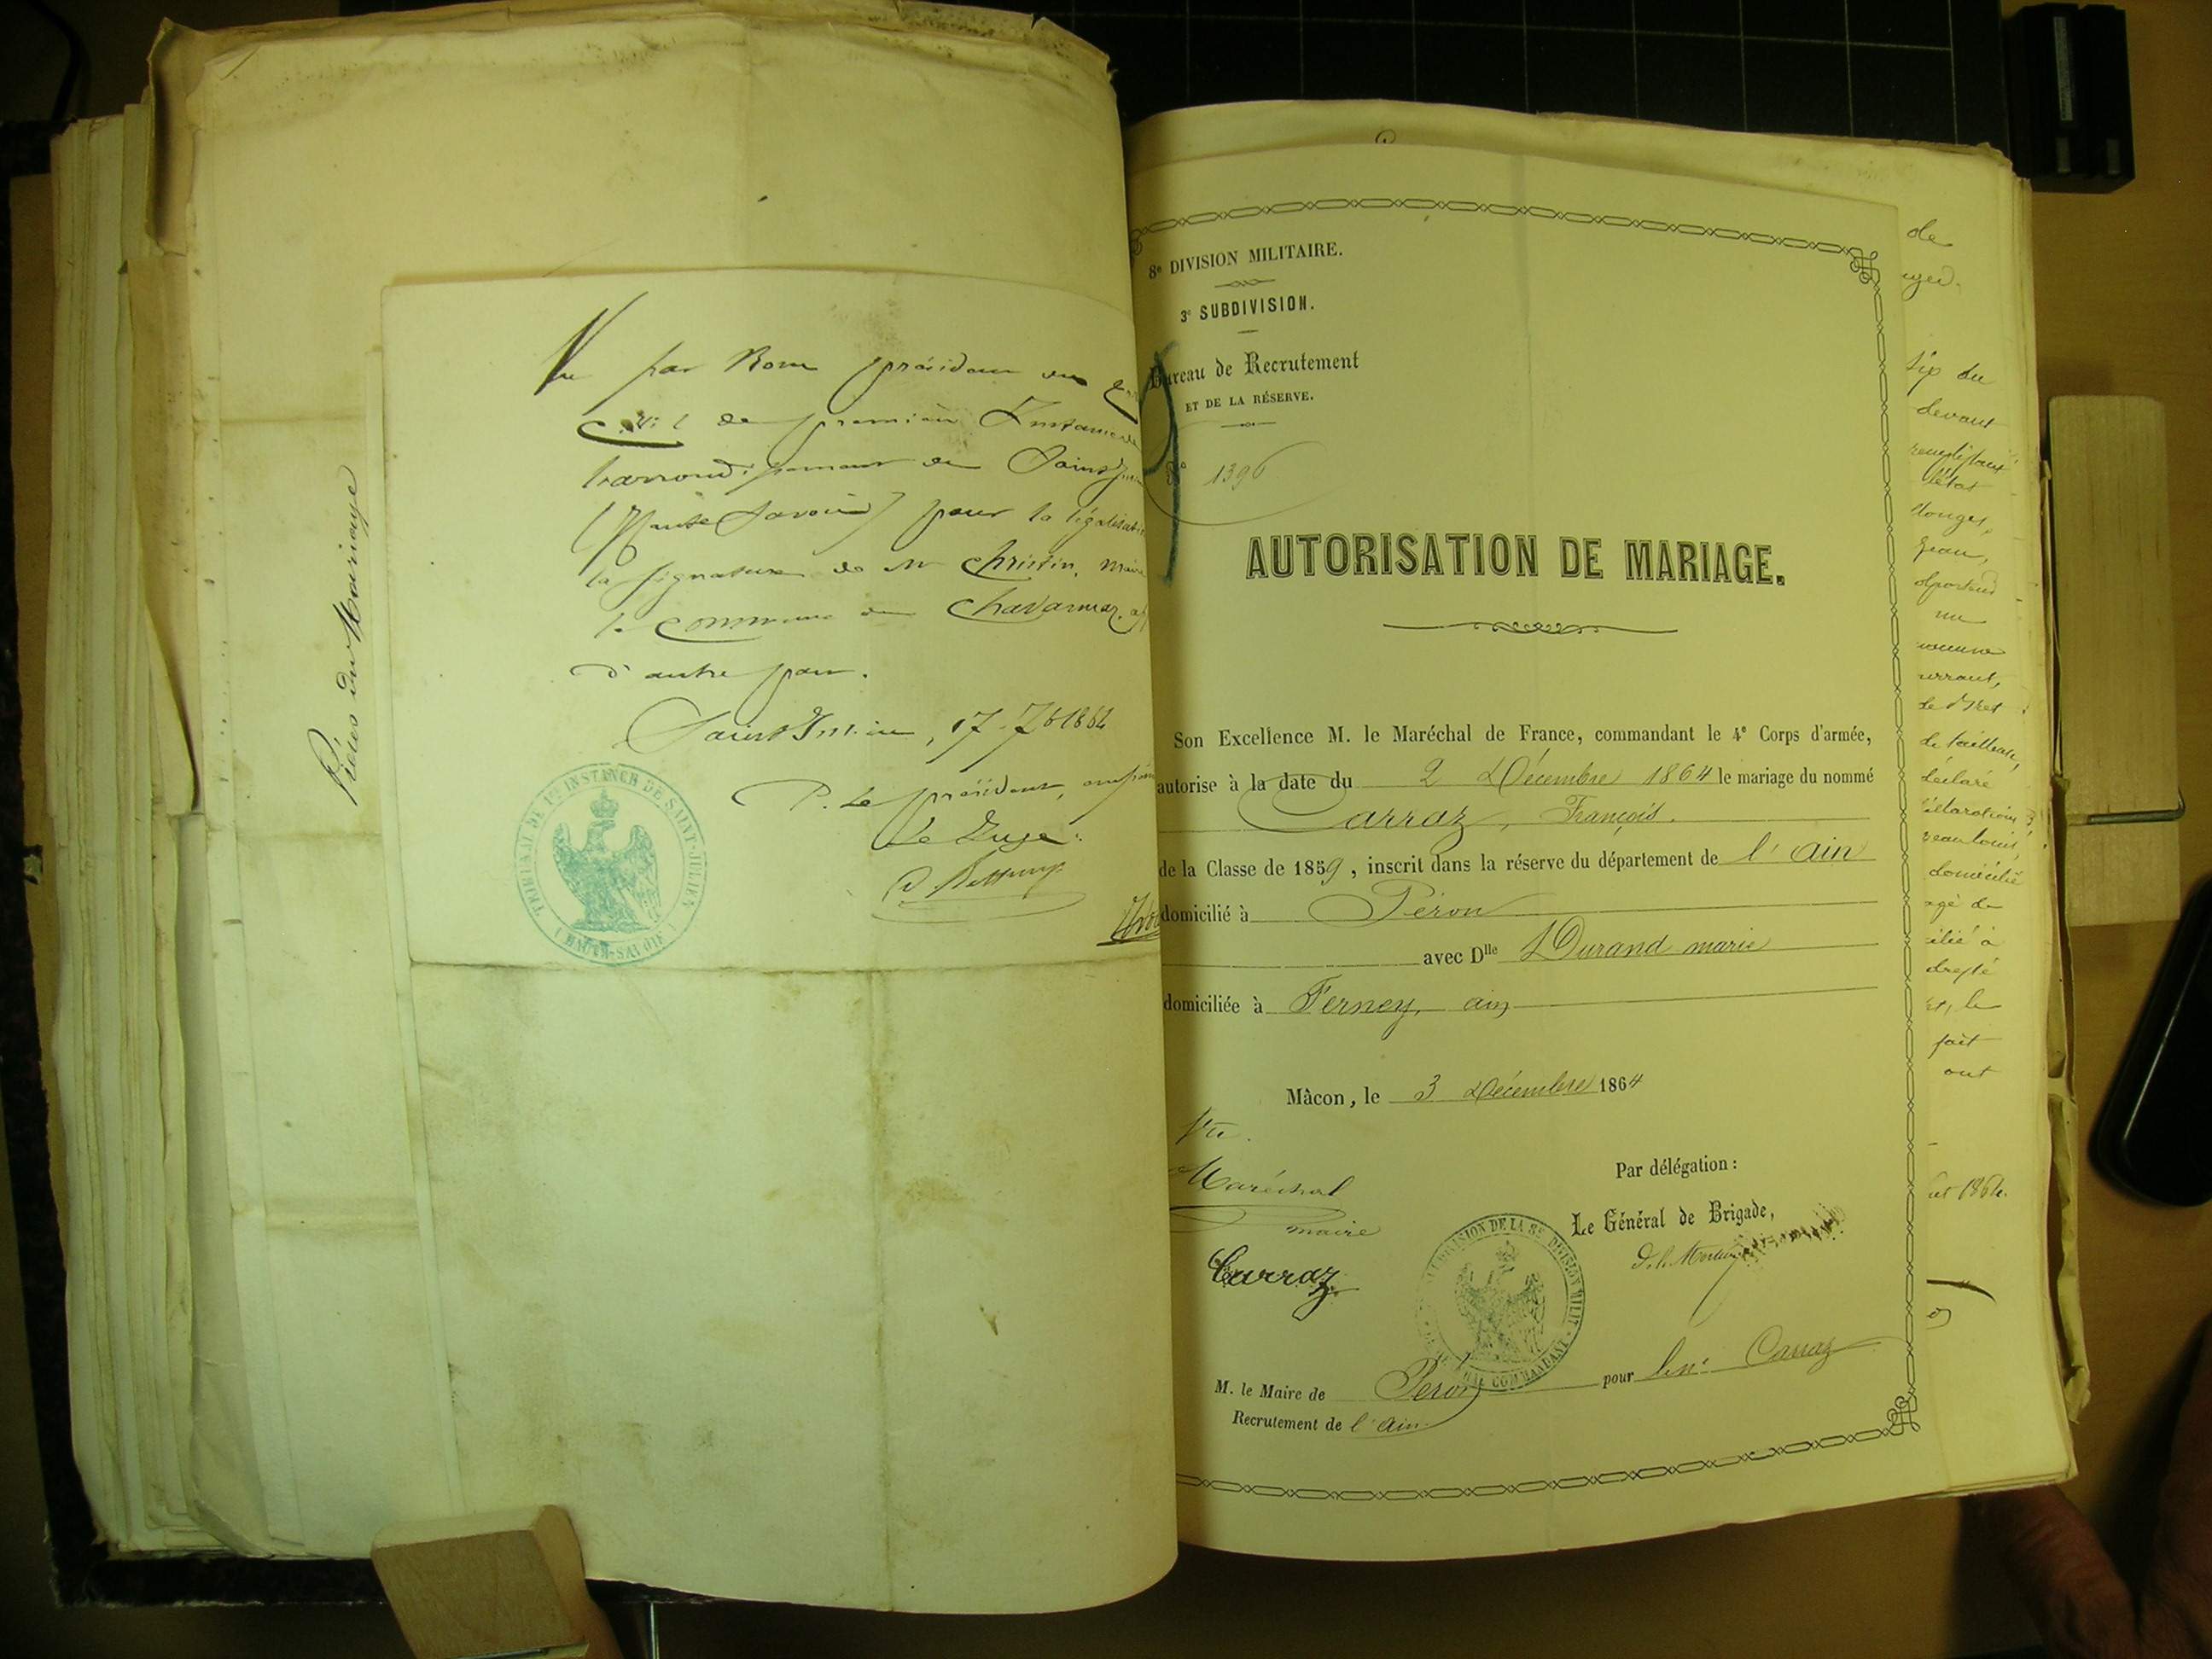 Pièces du Mariage
Vu par Nous président du
Civil de première Instance de
l'arrondissement de Saint Julien
(Haute Savoie) pour la légalisation
la signature de Mr Christin, Maire
la Commune de Chavannaz,
d'autre part.
Saint Julien, 17 7b 1864
P. Le président,
Le Juge
TRIBUNAL DE 1re INSTANCE DE SAINT-JULIEN
(HAUTE-SAVOIE)
8e DIVISION MILITAIRE.
3e SUBDIVISION.
Bureau de Recrutement
ET DE LA RÉSERVE.
No 1396
AUTORISATION DE MARIAGE.
Son Excellence M. le Maréchal de France, commandant le 4e Corps d'armée,
autorise à la date du 2 Décembre 1864 le mariage du nommé
Carraz, François.
de la Classe de 1859, inscrit dans la réserve du département de l'ain
domicilié à Péron
avec Dlle Durand marie
domiciliée à Ferney, ain
Mâcon, le 3 Décembre 1864
Vu.
Maréchal
maire
Carraz
Par délégation :
Le Général de Brigade,
SUBDIVISION DE LA 8e DIVISION MILIT
COMMANDANT
M. le Maire de Péron pour le né Carraz
Recrutement de l'ain
de
sip du
devant
l'état
une
de
déclaré
domicilié
agé de
cilié à
et, le
fait
ont
1864.